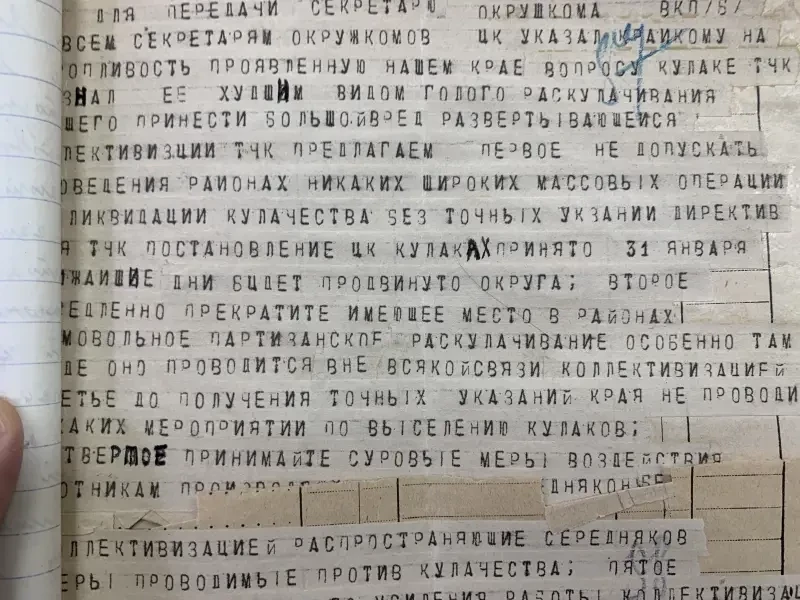 ДЛЯ ПЕРЕДАЧИ СЕКРЕТАРЮ ОКРУШКОМА ВКП/б/
ВСЕМ СЕКРЕТАРЯМ ОКРУЖКОМОВ ЦК УКАЗАЛ КРАЙКОМУ НА
ОПЛИВОСТЬ ПРОЯВЛЕННУЮ НАШЕМ КРАЕ ВОПРОСУ КУЛАКЕ ТЧК
ЗНАЛ ЕЕ ХУДШИМ ВИДОМ ГОЛОГО РАСКУЛАЧИВАНИЯ
ШЕГО ПРИНЕСТИ БОЛЬШОЙВРЕД РАЗВЕРТЫВАЮЩЕЙСЯ
ЛЕКТИВИЗЦИИ ТЧК ПРЕДЛАГАЕМ ПЕРВОЕ НЕ ДОПУСКАТЬ
ОВЕДЕНИЯ РАЙОНАХ НИКАКИХ ШИРОКИХ МАССОВЫХ ОПЕРАЦИИ
ЛИКВИДАЦИИ КУЛАЧЕСТВА БЕЗ ТОЧНЫХ УКЗАНИИ ДИРЕКТИВ
Я ТЧК ПОСТАНОВЛЕНИЕ ЦК КУЛАКАХПРИНЯТО 31 ЯНВАРЯ
ИЖАИШИЕ ДНИ БУДЕТ ПРОДВИНУТО ОКРУГА; ВТОРОЕ
ЕДЛЕННО ПРЕКРАТИТЕ ИМЕЮЩЕЕ МЕСТО В РАЙОНАХ
МОВОЛЬНОЕ ПАРТИЗАНСКОЕ РАСКУЛАЧИВАНИЕ ОСОБЕННО ТАМ
ДЕ ОНО ПРОВОДИТСЯ ВНЕ ВСЯКОЙСВЯЗИ КОЛЛЕКТИВИЗАЦИЕЙ
ЕТЬЕ ДО ПОЛУЧЕНИЯ ТОЧНЫХ УКАЗАНИЙ КРАЯ НЕ ПРОВОДИ
КАКИХ МЕРОПРИЯТИИ ПО ВЫСЕЛЕНИЮ КУЛАКОВ;
ТВЕРТОЕ ПРИНИМАЙТЕ СУРОВЫЕ МЕРЫ ВОЗДЕЙСТВИЯ
ОТНИКАМ
ЛЛЕКТИВИЗАЦИЕЙ РАСПРОСТРАНЯЮЩИЕ СЕРЕДНЯКОВ
ЕРЫ ПРОВОДИМЫЕ ПРОТИВ КУЛАЧЕСТВА; ПЯТОЕ
УСИЛЕНИЯ РАБОТЫ КОЛЛЕКТИВИЗАЦ